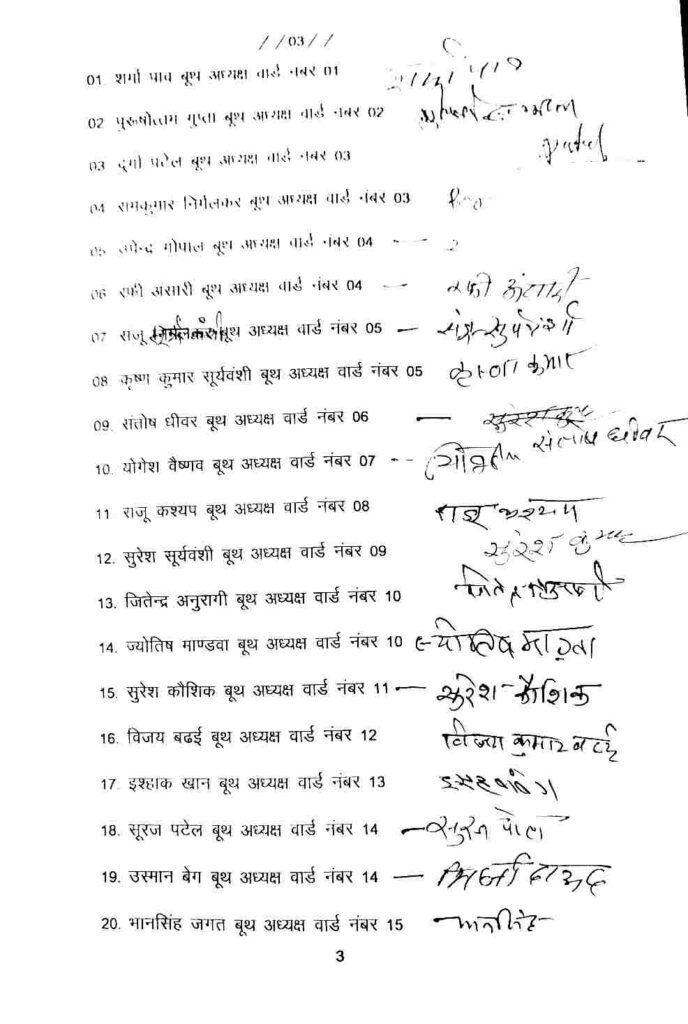 //03//
01. शर्मा पाव बूथ अध्यक्ष वार्ड नंबर 01
02 पुरूषोत्तम गुप्ता बूथ अध्यक्ष वार्ड नंबर 02
patel
03 दुर्गा पटेल बूथ अध्यक्ष वार्ड नंबर 03
04 रामकुमार निर्मलकर बूथ अध्यक्ष वार्ड नंबर 03
05 उपेन्द्र गोपाल बूथ अध्यक्ष वार्ड नंबर 04
06 रफी अंसारी बूथ अध्यक्ष वार्ड नंबर 04 – रफी अंसारी
07 राजू बूथ अध्यक्ष वार्ड नंबर 05 –
08 कृष्ण कुमार सूर्यवंशी बूथ अध्यक्ष वार्ड नंबर 05 कृष्णा कुमार
09. संतोष धीवर बूथ अध्यक्ष वार्ड नंबर 06 — संतोष धीवर
10. योगेश वैष्णव बूथ अध्यक्ष वार्ड नंबर 07 --
11 राजू कश्यप बूथ अध्यक्ष वार्ड नंबर 08 राजू कश्यप
12. सुरेश सूर्यवंशी बूथ अध्यक्ष वार्ड नंबर 09 सुरेश कुमार
13. जितेन्द्र अनुरागी बूथ अध्यक्ष वार्ड नंबर 10
14. ज्योतिष माण्डवा बूथ अध्यक्ष वार्ड नंबर 10
15. सुरेश कौशिक बूथ अध्यक्ष वार्ड नंबर 11 — सुरेश कौशिक
16. विजय बढई बूथ अध्यक्ष वार्ड नंबर 12
17. इश्हाक खान बूथ अध्यक्ष वार्ड नंबर 13
18. सूरज पटेल बूथ अध्यक्ष वार्ड नंबर 14
19. उस्मान बेग बूथ अध्यक्ष वार्ड नंबर 14 —
20. भानसिंह जगत बूथ अध्यक्ष वार्ड नंबर 15
3